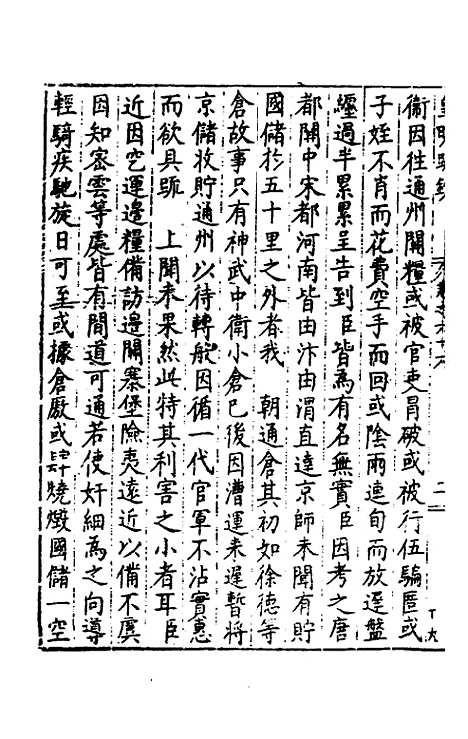 衞因往通州關糧或被官吏冒破或被行伍騙匿或
子姪不肖而花費空手而回或陰雨連旬而放遲盤
纏過半累累呈告到臣皆爲有名無實臣因考之唐
都關中宋都河南皆由汴由渭直達京師未聞有貯
國儲於五十里之外者我　朝通倉其初如徐德等
倉故事只有神武中衛小倉已後因漕運來遲暫將
京儲收貯通州以待轉般因循一代官軍不沾實惠
而欲具䟽　上聞未果然此特其利害之小者耳臣
近因空運邊糧備訪邊關寨堡險夷遠近以備不虞
因知密雲等處皆有間道可通若使奸細爲之向導
輕騎疾馳旋日可至或據倉厫或肆燒燬國儲一空